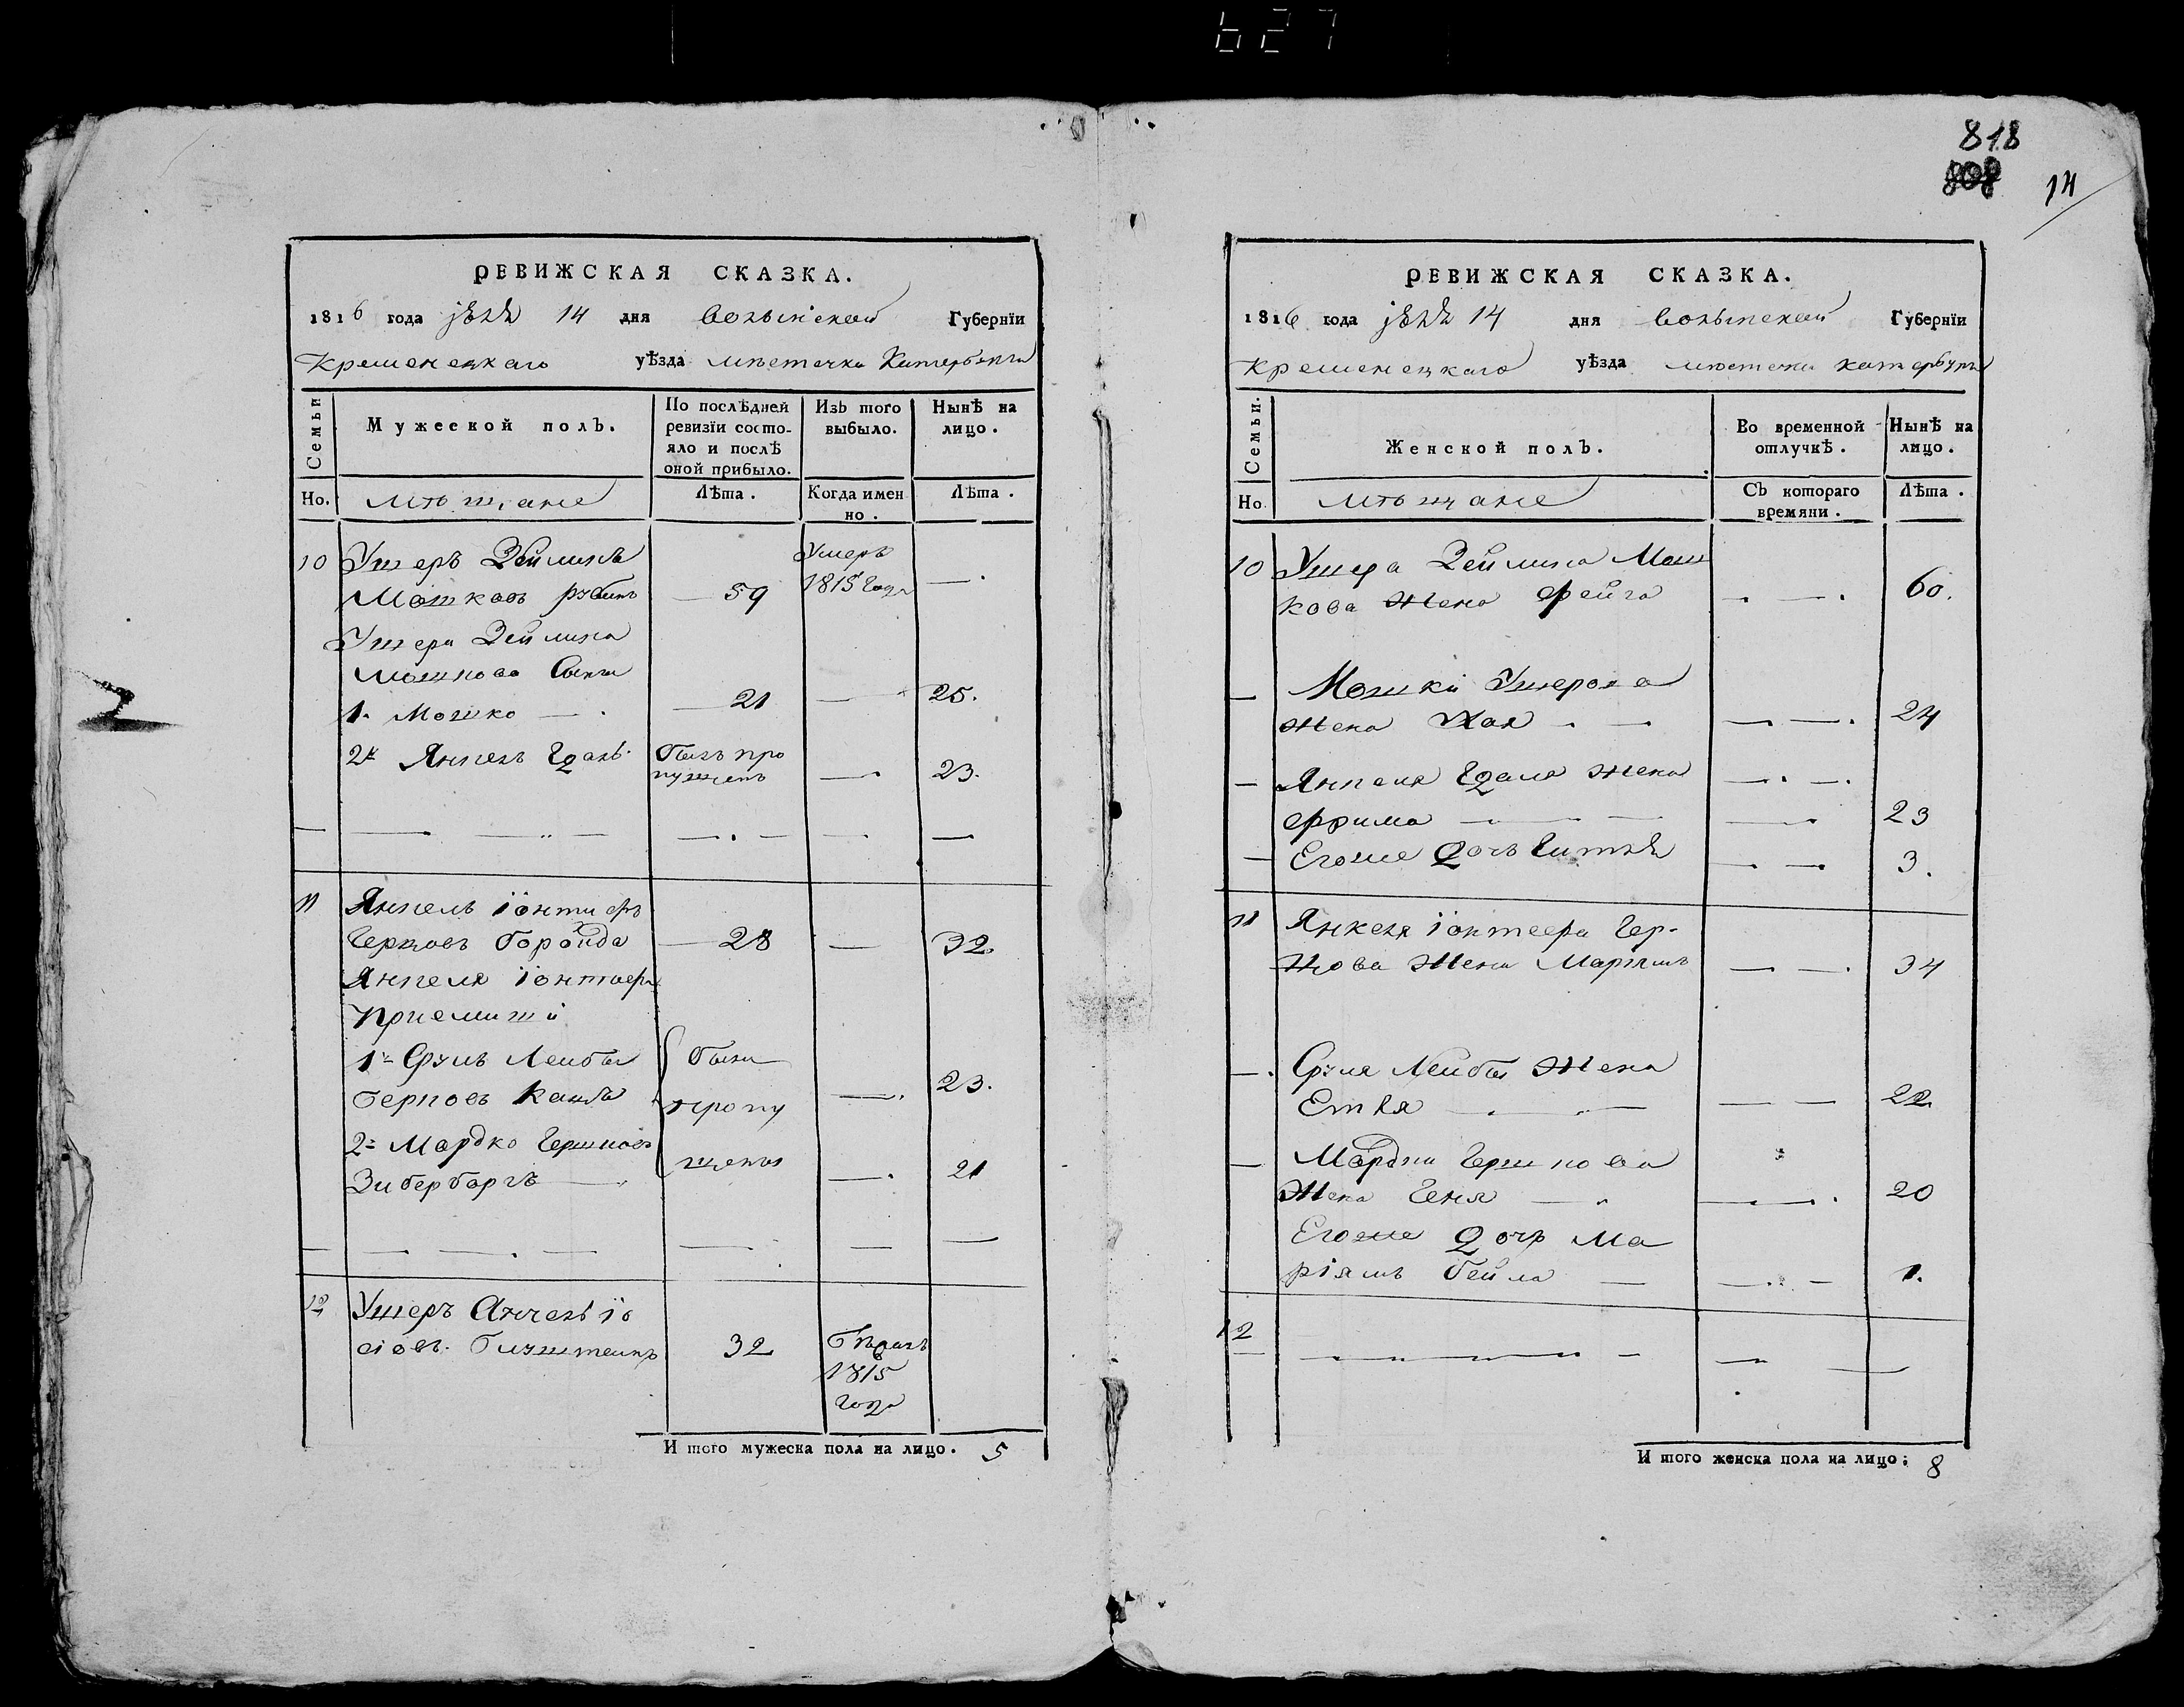 627
818
14
РЕВИЖСКАЯ СКАЗКА.
1816 года 14 дня Волынской Губернїи
Кременецкаго уѣзда мѣстечка Катербурга
Семьи
Мужеской полъ.
По послѣдней ревизїи состояло и послѣ оной прибыло.
Изъ того выбыло.
Нынѣ на лицо.
Но.
мѣщане
Лѣта.
Когда именно.
Лѣта.
10 Ушеръ Зейликъ Умеръ
Мошковъ Рубинъ 59 1815 Года
Ушера Зейлика
Мошкова Сыны
1. Мошко 21 25.
2й Янкель Гдаль былъ пропущенъ 23.
11 Янкель Іонтиеръ
Герцовъ Бороида 28 32.
Янкеля Іонтиера
Приемыши
1й Сруль Лейба были
Берковъ пропу 23.
2й Мардко Гершковъ щены
Зибербаргъ 21
12 Ушеръ Анчель Іо
сіовъ 32 бѣжалъ
1815
года
И того мужеска пола на лицо. 5
РЕВИЖСКАЯ СКАЗКА.
1816 года 14 дня Волынской Губернїи
Кременецкаго уѣзда мѣстечка Катербурга
Семьи.
Женской полъ.
Во временной отлучкѣ.
Нынѣ на лицо.
Но.
мѣщане
Съ котораго времяни.
Лѣта.
10 Ушера Зейлика Мош
кова жена Фейга 60.
Мошки Ушерова
жена Хая 24
Янкеля Гдаля жена
Фрима 23
Егоже дочь Гитля 3.
11 Янкеля Іонтиера Гер-
цова жена Маріямъ 34
Сруля Лейбы жена
Етля 22
Мардки Гершкова
жена Геня 20
Егоже дочь Ма
ріямъ Бейла 1.
12
И того женска пола на лицо: 8